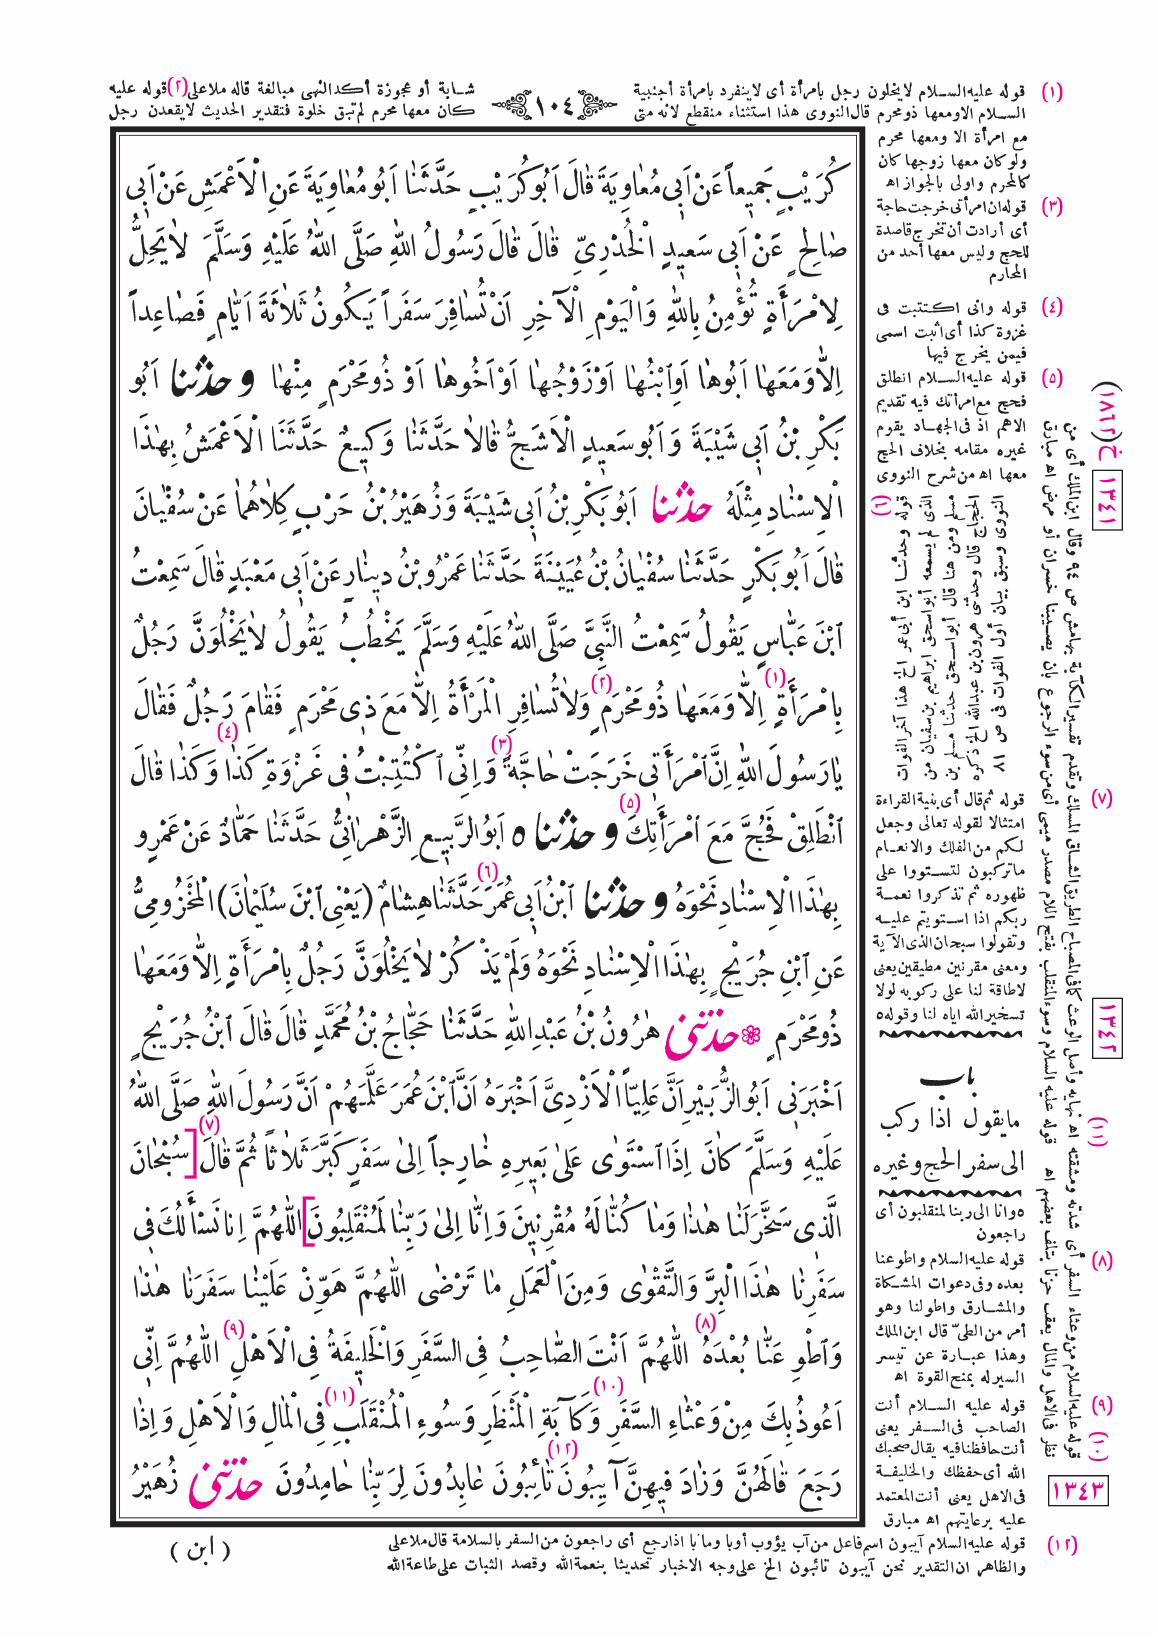 (١) قوله عليه السلام لا يخلون رجل بامرأة أى لا ينفرد بامرأة أجنبية
شابة أو عجوزة أكد النهى مبالغة قاله ملا على (٢) قوله عليه
١٠٤
السلام الا ومعها ذو محرم قال النووى هذا استثناء منقطع لانه متى
كان معها محرم لم تبق خلوة فتقدير الحديث لا يقعدن رجل
مع امرأة الا ومعها محرم
ولو كان معها زوجها كان
كالمحرم واولى بالجواز اه
(٣) قوله ان امرأتى خرجت حاجة
أى أرادت أن تخرج قاصدة
للحج وليس معها أحد من
المحارم
(٤) قوله وانى اكتتبت فى
غزوة كذا أى اثبت اسمى
فيمن يخرج فيها
(٥) قوله عليه السلام انطلق
فحج مع امرأتك فيه تقديم
الاهم اذ فى الجهاد يقوم
غيره مقامه بخلاف الحج
معها اه من شرح النووى
كُرَيْبٍ جَمِيعاً عَنْ اَبِى مُعَاوِيَةَ قَالَ اَبُو كُرَيْبٍ حَدَّثَنَا اَبُو مُعَاوِيَةَ عَنِ الْاَعْمَشِ عَنْ اَبِى
صَالِحٍ عَنْ اَبِى سَعِيدٍ الْخُدْرِىِّ قَالَ قَالَ رَسُولُ اللهِ صَلَّى اللهُ عَلَيْهِ وَسَلَّمَ لَا يَحِلُّ
لِامْرَأَةٍ تُؤْمِنُ بِاللهِ وَالْيَوْمِ الْآخِرِ اَنْ تُسَافِرَ سَفَراً يَكُونُ ثَلَاثَةَ اَيَّامٍ فَصَاعِداً
اِلَّا وَمَعَهَا اَبُوهَا اَوِ ابْنُهَا اَوْ زَوْجُهَا اَوْ اَخُوهَا اَوْ ذُو مَحْرَمٍ مِنْهَا وحدثنا اَبُو
بَكْرِ بْنُ اَبِى شَيْبَةَ وَاَبُو سَعِيدٍ الْاَشَجُّ قَالَا حَدَّثَنَا وَكِيعٌ حَدَّثَنَا الْاَعْمَشُ بِهٰذَا
الْاِسْنَادِ مِثْلَهُ حدثنا اَبُو بَكْرِ بْنُ اَبِى شَيْبَةَ وَزُهَيْرُ بْنُ حَرْبٍ كِلَاهُمَا عَنْ سُفْيَانَ
قَالَ اَبُو بَكْرٍ حَدَّثَنَا سُفْيَانُ بْنُ عُيَيْنَةَ حَدَّثَنَا عَمْرُو بْنُ دِينَارٍ عَنْ اَبِى مَعْبَدٍ قَالَ سَمِعْتُ
ابْنَ عَبَّاسٍ يَقُولُ سَمِعْتُ النَّبِىَّ صَلَّى اللهُ عَلَيْهِ وَسَلَّمَ يَخْطُبُ يَقُولُ لَا يَخْلُوَنَّ رَجُلٌ
بِامْرَأَةٍ (١) اِلَّا وَمَعَهَا ذُو مَحْرَمٍ (٢) وَلَا تُسَافِرِ الْمَرْأَةُ اِلَّا مَعَ ذِى مَحْرَمٍ فَقَامَ رَجُلٌ فَقَالَ
يَا رَسُولَ اللهِ اِنَّ امْرَأَتِى خَرَجَتْ حَاجَّةً (٣) وَاِنِّى اكْتُتِبْتُ فِى غَزْوَةِ كَذَا (٤) وَكَذَا قَالَ
انْطَلِقْ فَحُجَّ مَعَ امْرَأَتِكَ (٥) وحدثنا ٥ اَبُو الرَّبِيعِ الزَّهْرَانِىُّ حَدَّثَنَا حَمَّادٌ عَنْ عَمْرٍو
بِهٰذَا الْاِسْنَادِ نَحْوَهُ وحدثنا ابْنُ اَبِى عُمَرَ (٦) حَدَّثَنَا هِشَامٌ (يَعْنِى ابْنَ سُلَيْمَانَ) الْمَخْزُومِىُّ
عَنِ ابْنِ جُرَيْجٍ بِهٰذَا الْاِسْنَادِ نَحْوَهُ وَلَمْ يَذْكُرْ لَا يَخْلُوَنَّ رَجُلٌ بِامْرَأَةٍ اِلَّا وَمَعَهَا
ذُو مَحْرَمٍ ❁ حدثنى هٰرُونُ بْنُ عَبْدِ اللهِ حَدَّثَنَا حَجَّاجُ بْنُ مُحَمَّدٍ قَالَ قَالَ ابْنُ جُرَيْجٍ
اَخْبَرَنِى اَبُو الزُّبَيْرِ اَنَّ عَلِيّاً الْاَزْدِىَّ اَخْبَرَهُ اَنَّ ابْنَ عُمَرَ عَلَّمَهُمْ اَنَّ رَسُولَ اللهِ صَلَّى اللهُ
عَلَيْهِ وَسَلَّمَ كَانَ اِذَا اسْتَوٰى عَلٰى بَعِيرِهِ خَارِجاً اِلٰى سَفَرٍ كَبَّرَ ثَلَاثاً ثُمَّ قَالَ (٧) [سُبْحَانَ
الَّذِى سَخَّرَ لَنَا هٰذَا وَمَا كُنَّا لَهُ مُقْرِنِينَ وَاِنَّا اِلٰى رَبِّنَا لَمُنْقَلِبُونَ] اَللّٰهُمَّ اِنَّا نَسْأَلُكَ فِى
سَفَرِنَا هٰذَا الْبِرَّ وَالتَّقْوٰى وَمِنَ الْعَمَلِ مَا تَرْضٰى اَللّٰهُمَّ هَوِّنْ عَلَيْنَا سَفَرَنَا هٰذَا
وَاطْوِ عَنَّا بُعْدَهُ (٨) اَللّٰهُمَّ اَنْتَ الصَّاحِبُ فِى السَّفَرِ وَالْخَلِيفَةُ فِى الْاَهْلِ (٩) اَللّٰهُمَّ اِنِّى
اَعُوذُ بِكَ مِنْ وَعْثَاءِ السَّفَرِ (١٠) وَكَآبَةِ الْمَنْظَرِ وَسُوءِ الْمُنْقَلَبِ (١١) فِى الْمَالِ وَالْاَهْلِ وَاِذَا
رَجَعَ قَالَهُنَّ وَزَادَ فِيهِنَّ آيِبُونَ (١٢) تَائِبُونَ عَابِدُونَ لِرَبِّنَا حَامِدُونَ حدثنى زُهَيْرُ
(٦) قوله وحدثنا ابن أبى عمر الخ هذا آخر الفوات
الذى لم يسمعه أبو اسحق ابراهيم بن سفيان من
مسلم ومن هنا قال أبو اسحق حدثنا مسلم بن
الحجاج قال وحدثنى هرون بن عبدالله الخ ذكره
النووى وسبق بيان أول الفوات فى ص ٨١
(٧) قوله ثم قال أى بنية القراءة
امتثالا لقوله تعالى وجعل
لكم من الفلك والانعام
ما تركبون لتستووا على
ظهوره ثم تذكروا نعمة
ربكم اذا استويتم عليه
وتقولوا سبحان الذى الآية
ومعنى مقرنين مطيقين يعنى
لا طاقة لنا على ركوبه لولا
تسخير الله اياه لنا وقوله ٥
باب
ما يقول اذا ركب
الى سفر الحج وغيره
٥ وانا الى ربنا لمنقلبون أى
راجعون
(٨) قوله عليه السلام واطو عنا
بعده وفى دعوات المشكاة
والمشارق واطو لنا وهو
أمر من الطىّ قال ابن الملك
وهذا عبارة عن تيسر
السير له بمنح القوة اه
(٩) قوله عليه السلام أنت
الصاحب فى السفر يعنى
أنت حافظنا فيه يقال صحبك
الله أى حفظك والخليفة
فى الاهل يعنى أنت المعتمد
عليه برعايتهم اه مبارق
(١٠) قوله عليه السلام من وعثاء السفر أى شدته ومشقته اه نهايه وأصل الوعث كما فى المصباح الطريق الشاق المسلك وتقدم تفسير الكآبة بهامش ص ٩٤ وقال ابن الملك أى من
نظر فى الاهل والمال يعقب حزنا بتلف بعضهم اه (١١) قوله عليه السلام وسوء المنقلب بفتح اللام مصدر ميمى أى من سوء الرجوع بان يصيبنا خسران أو مرض اه مبارق
خ(١٨٦٢)
١٣٤١
١٣٤٢
١٣٤٣
(١٢) قوله عليه السلام آيبون اسم فاعل من آب يؤوب أوبا ومآبا اذا رجع أى راجعون من السفر بالسلامة قال ملا على
والظاهر ان التقدير نحن آيبون تائبون الخ على وجه الاخبار تحديثا بنعمة الله وقصد الثبات على طاعة الله
( ابن )